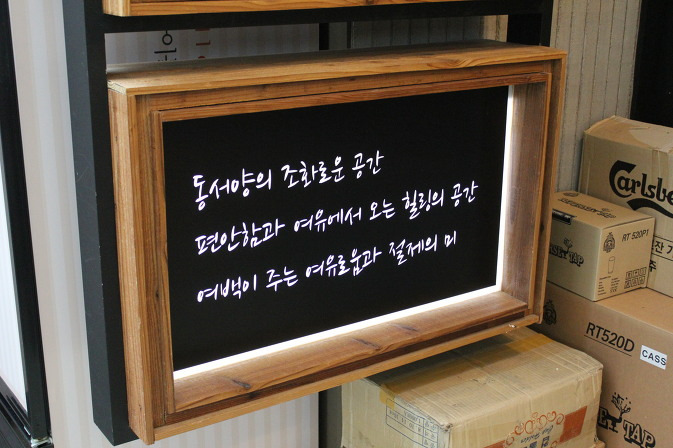 동서양의 조화로운 공간
편안함과 여유에서 오는 힐링의 공간
여백이 주는 여유로움과 절제의 미
Carlsbe
RT 520P1
TAP
RT520D
CASS
TAP